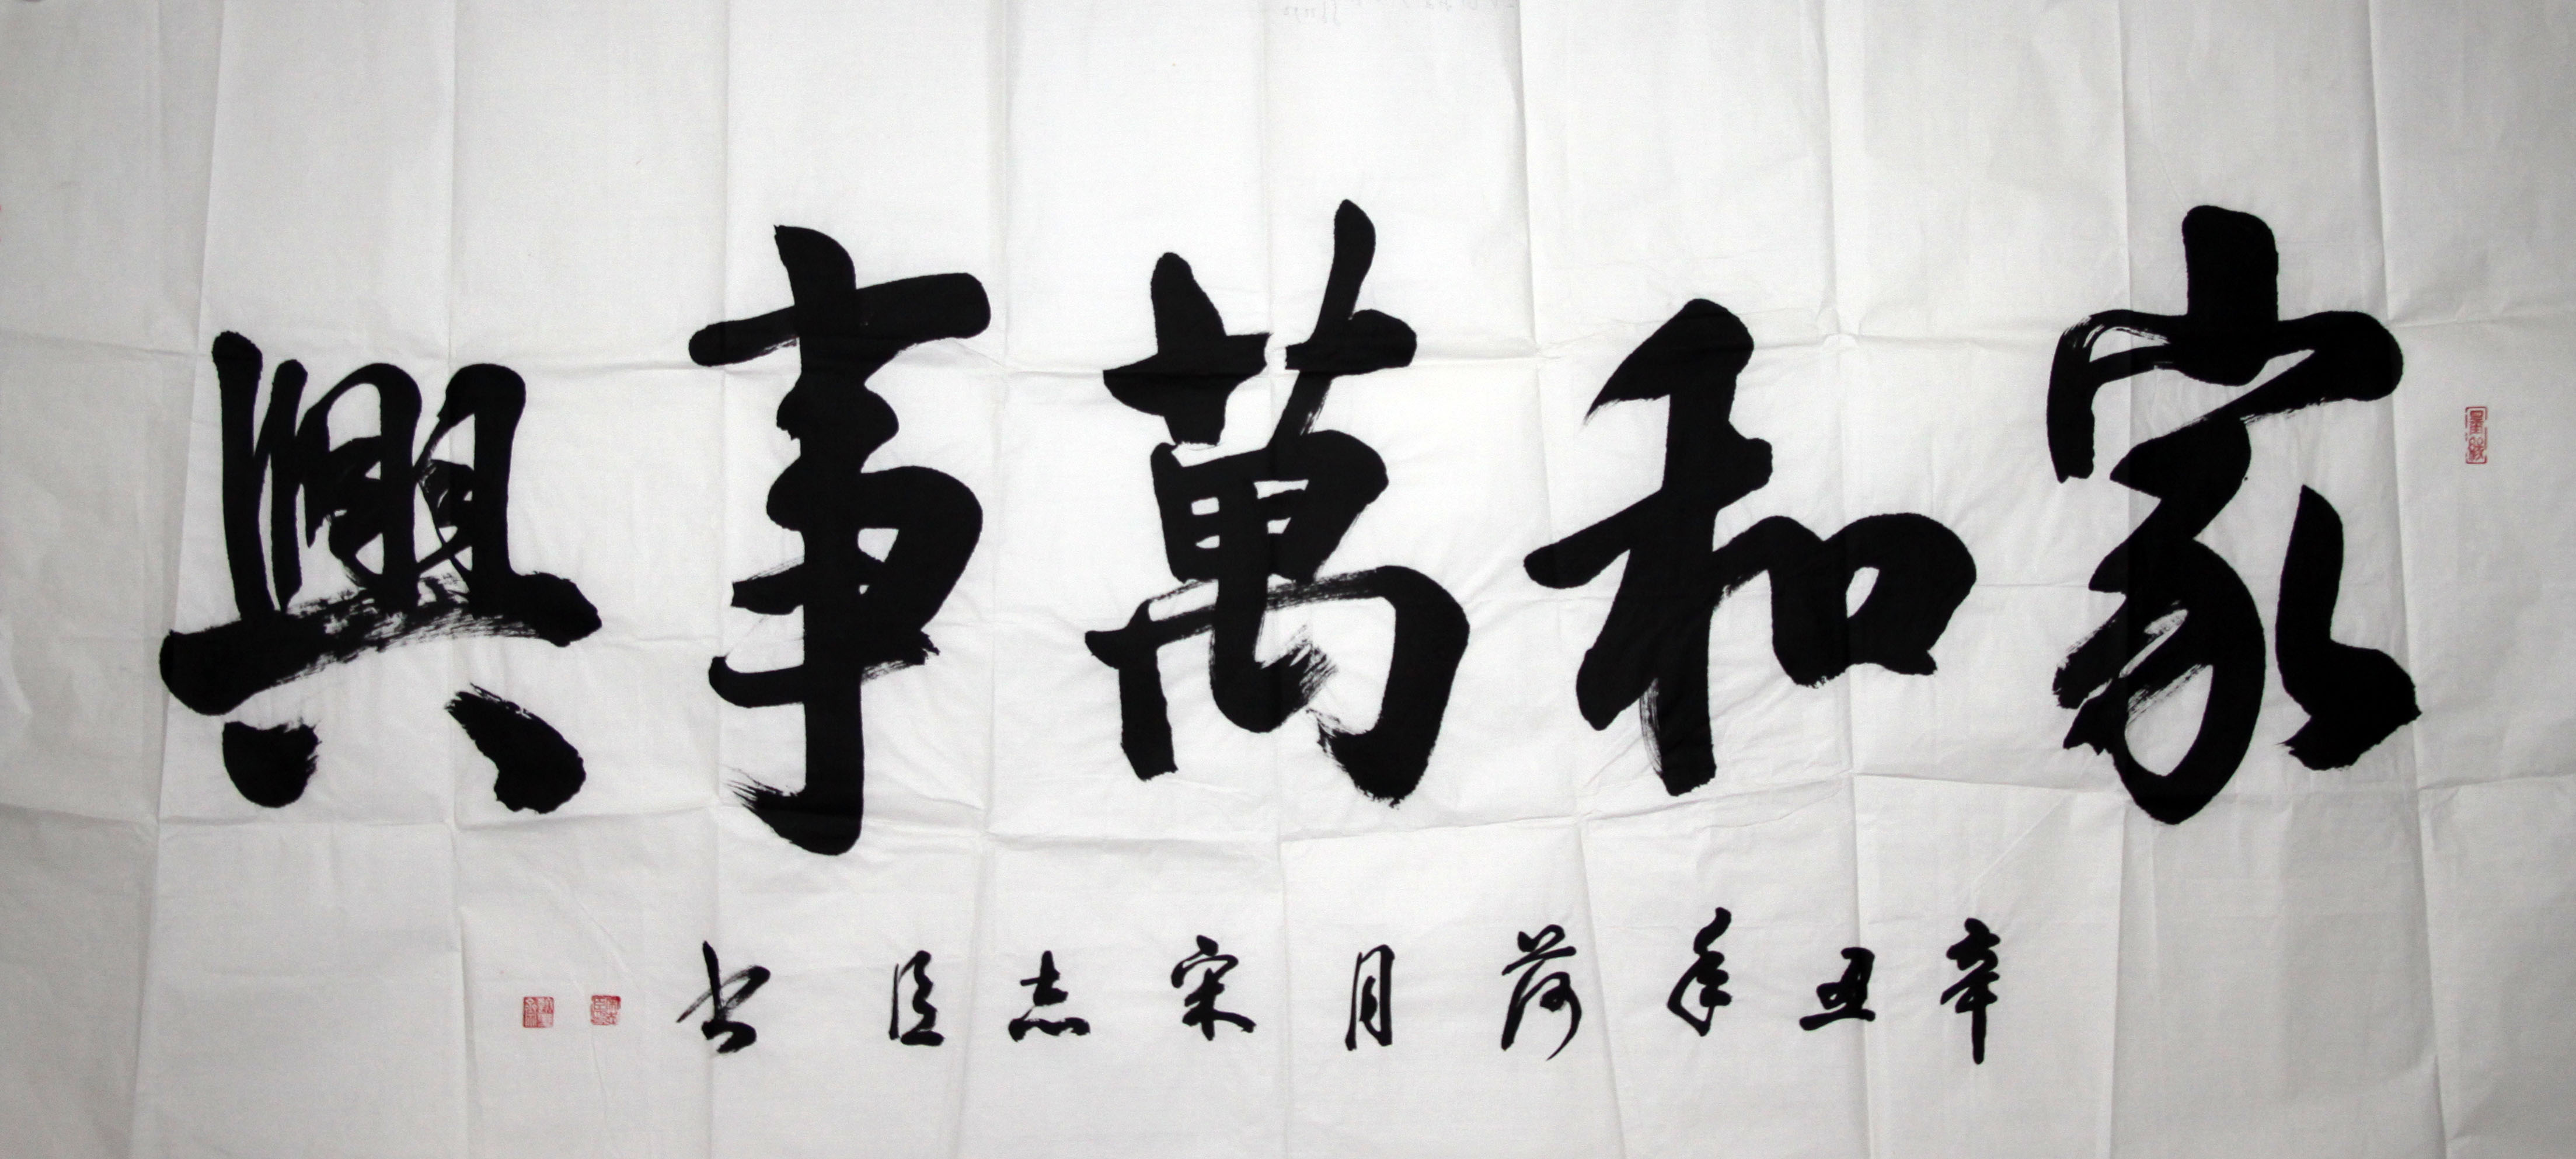 家和萬事興
辛丑年荷月宋志臣书